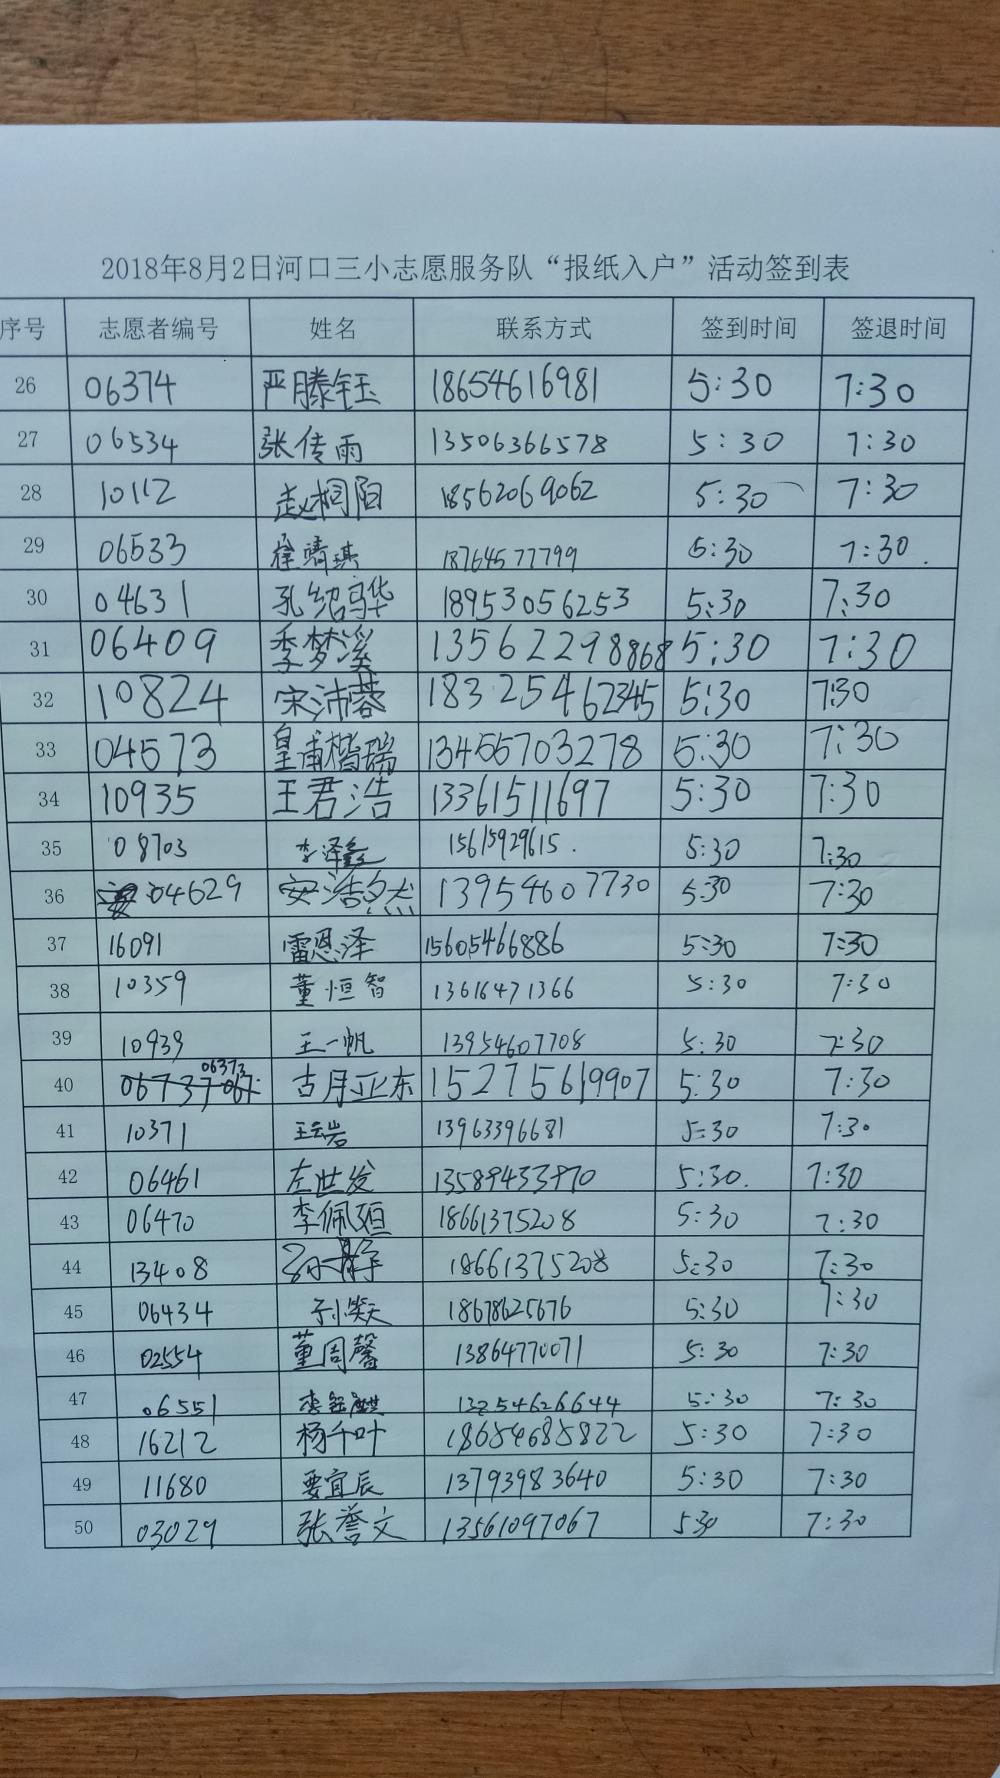 2018年8月2日河口三小志愿服务队“报纸入户”活动签到表
序号 志愿者编号 姓名 联系方式 签到时间 签退时间
26 06374 严滕钰 18654616981 5:30 7:30
27 06534 张传雨 13506366578 5:30 7:30
28 10112 赵桐阳 18562069062 5:30 7:30
29 06533 徐靖琪 18764577799 5:30 7:30
30 04631 孔绍骅 18953056253 5:30 7:30
31 06409 季梦溪 13562298868 5:30 7:30
32 10824 宋沛蓉 18325462345 5:30 7:30
33 04573 皇甫楷瑞 13455703278 5:30 7:30
34 10935 王君浩 13361511697 5:30 7:30
35 08703 李泽 15615929615. 5:30 7:30
36 04629 安浩然 13954607730 5:30 7:30
37 16091 雷恩泽 15605466886 5:30 7:30
38 10359 董恒智 13616471366 5:30 7:30
39 10939 王一帆 13954607708 5:30 7:30
40 06373 胡亚东 15275619907 5:30 7:30
41 10371 王云岩 13963396681 5:30 7:30
42 06461 左世发 13589433770 5:30. 7:30
43 06470 李佩 18661375208 5:30 7:30
44 13408 孙静 18661375208 5:30 7:30
45 06434 孙笑天 18678625676 5:30 7:30
46 02554 董周馨 13864770071 5:30 7:30
47 06551 李 麒 13254626644 5:30 7:30
48 16212 杨千叶 18654685822 5:30 7:30
49 11680 要宜辰 13793983640 5:30 7:30
50 03029 张誉文 13561097067 530 7:30